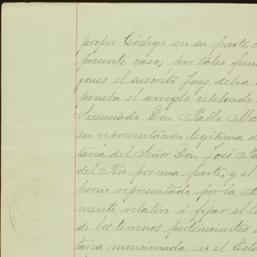 propio Código en su parte
presente caso; por tales fun
el suscrito Juez debia
prueba el arreglo celebrado
Licenciado Don Pablo Ma
en representacion legitima d
taria del Señor Don José Ma
del Rio por una parte, y el
representado por la
mente relativo á fijar el
de los terrenos pertenecientes
taria mencionada en el Esta